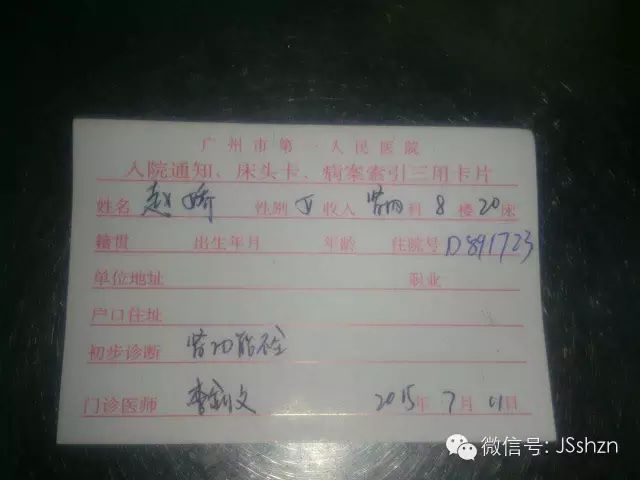 广州市第一人民医院
入院通知、床头卡、病案索引三用卡片
姓名 赵娇 性别 女 收入 肾内 科 8 楼 20 床
籍贯 出生年月 年龄 住院号 D891723
单位地址 职业
户口住址
初步诊断 肾功能不全
门诊医师 2015年 7月 日
微信号: JSshzn